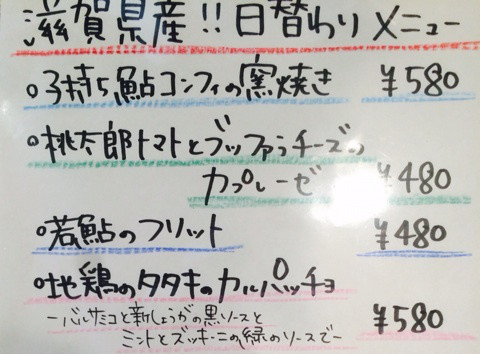 滋賀県産!!日替わりメニュー
○子持ち鮎コンフィの窯焼き ¥580
○桃太郎トマトとブッファラチーズの
カプレーゼ ¥480
○若鮎のフリット ¥480
○地鶏のタタキのカルパッチョ
ーバルサミコと新しょうがの黒ソースと ¥580
ミントとズッキーニの緑のソースでー